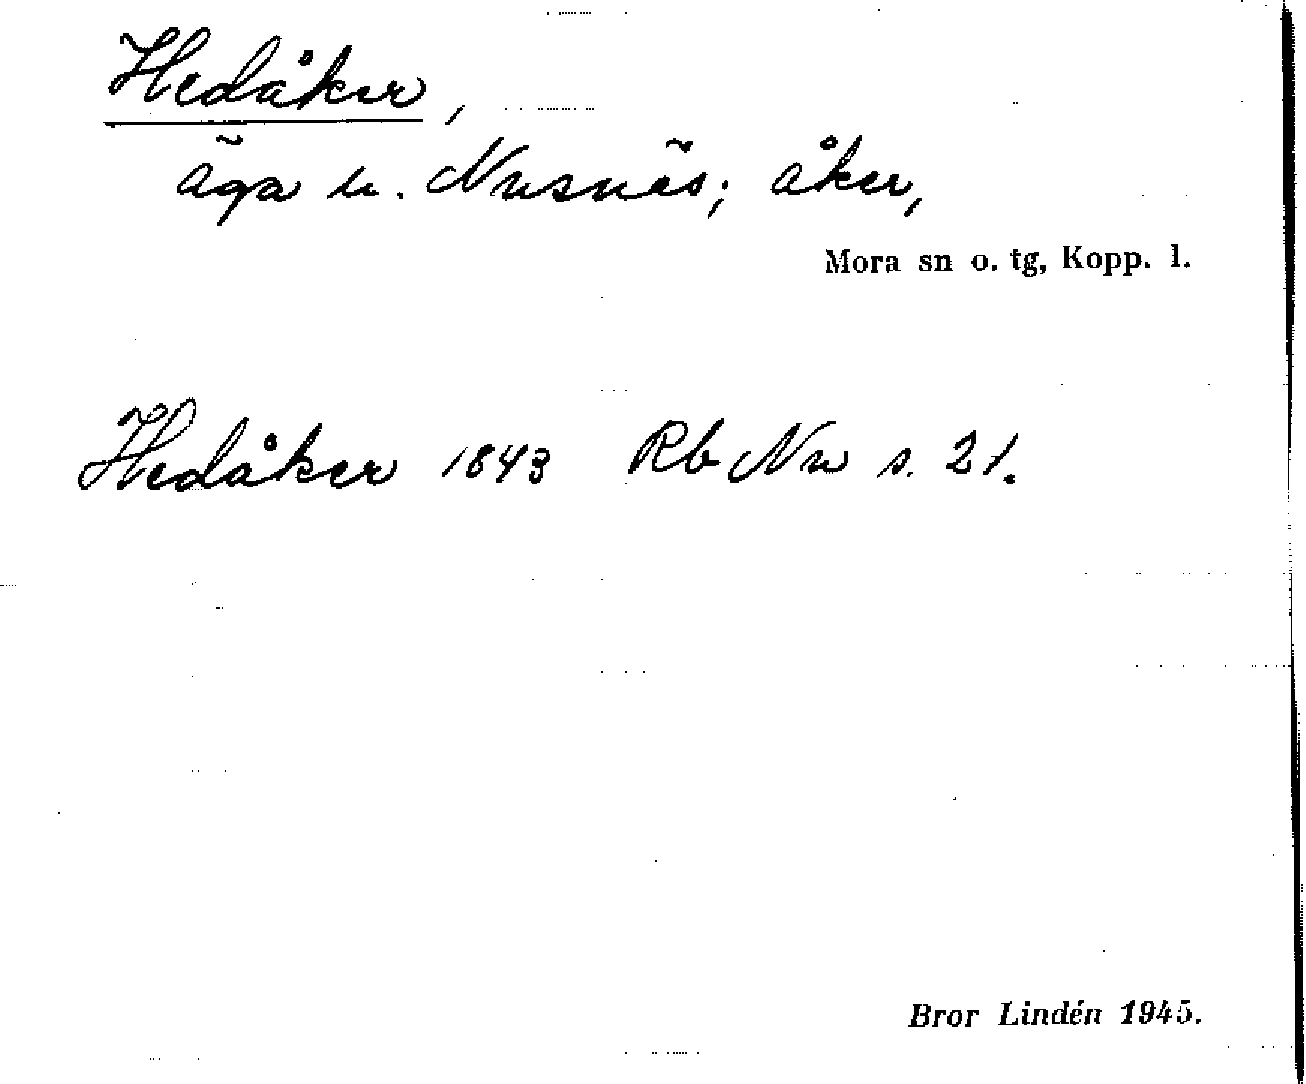 Hedåker,
äga u. Nusnäs; åker,
Mora sn o. tg, Kopp. l.
Hedåker 1843 Rb Nu s. 21.
Bror Lindén 1945.